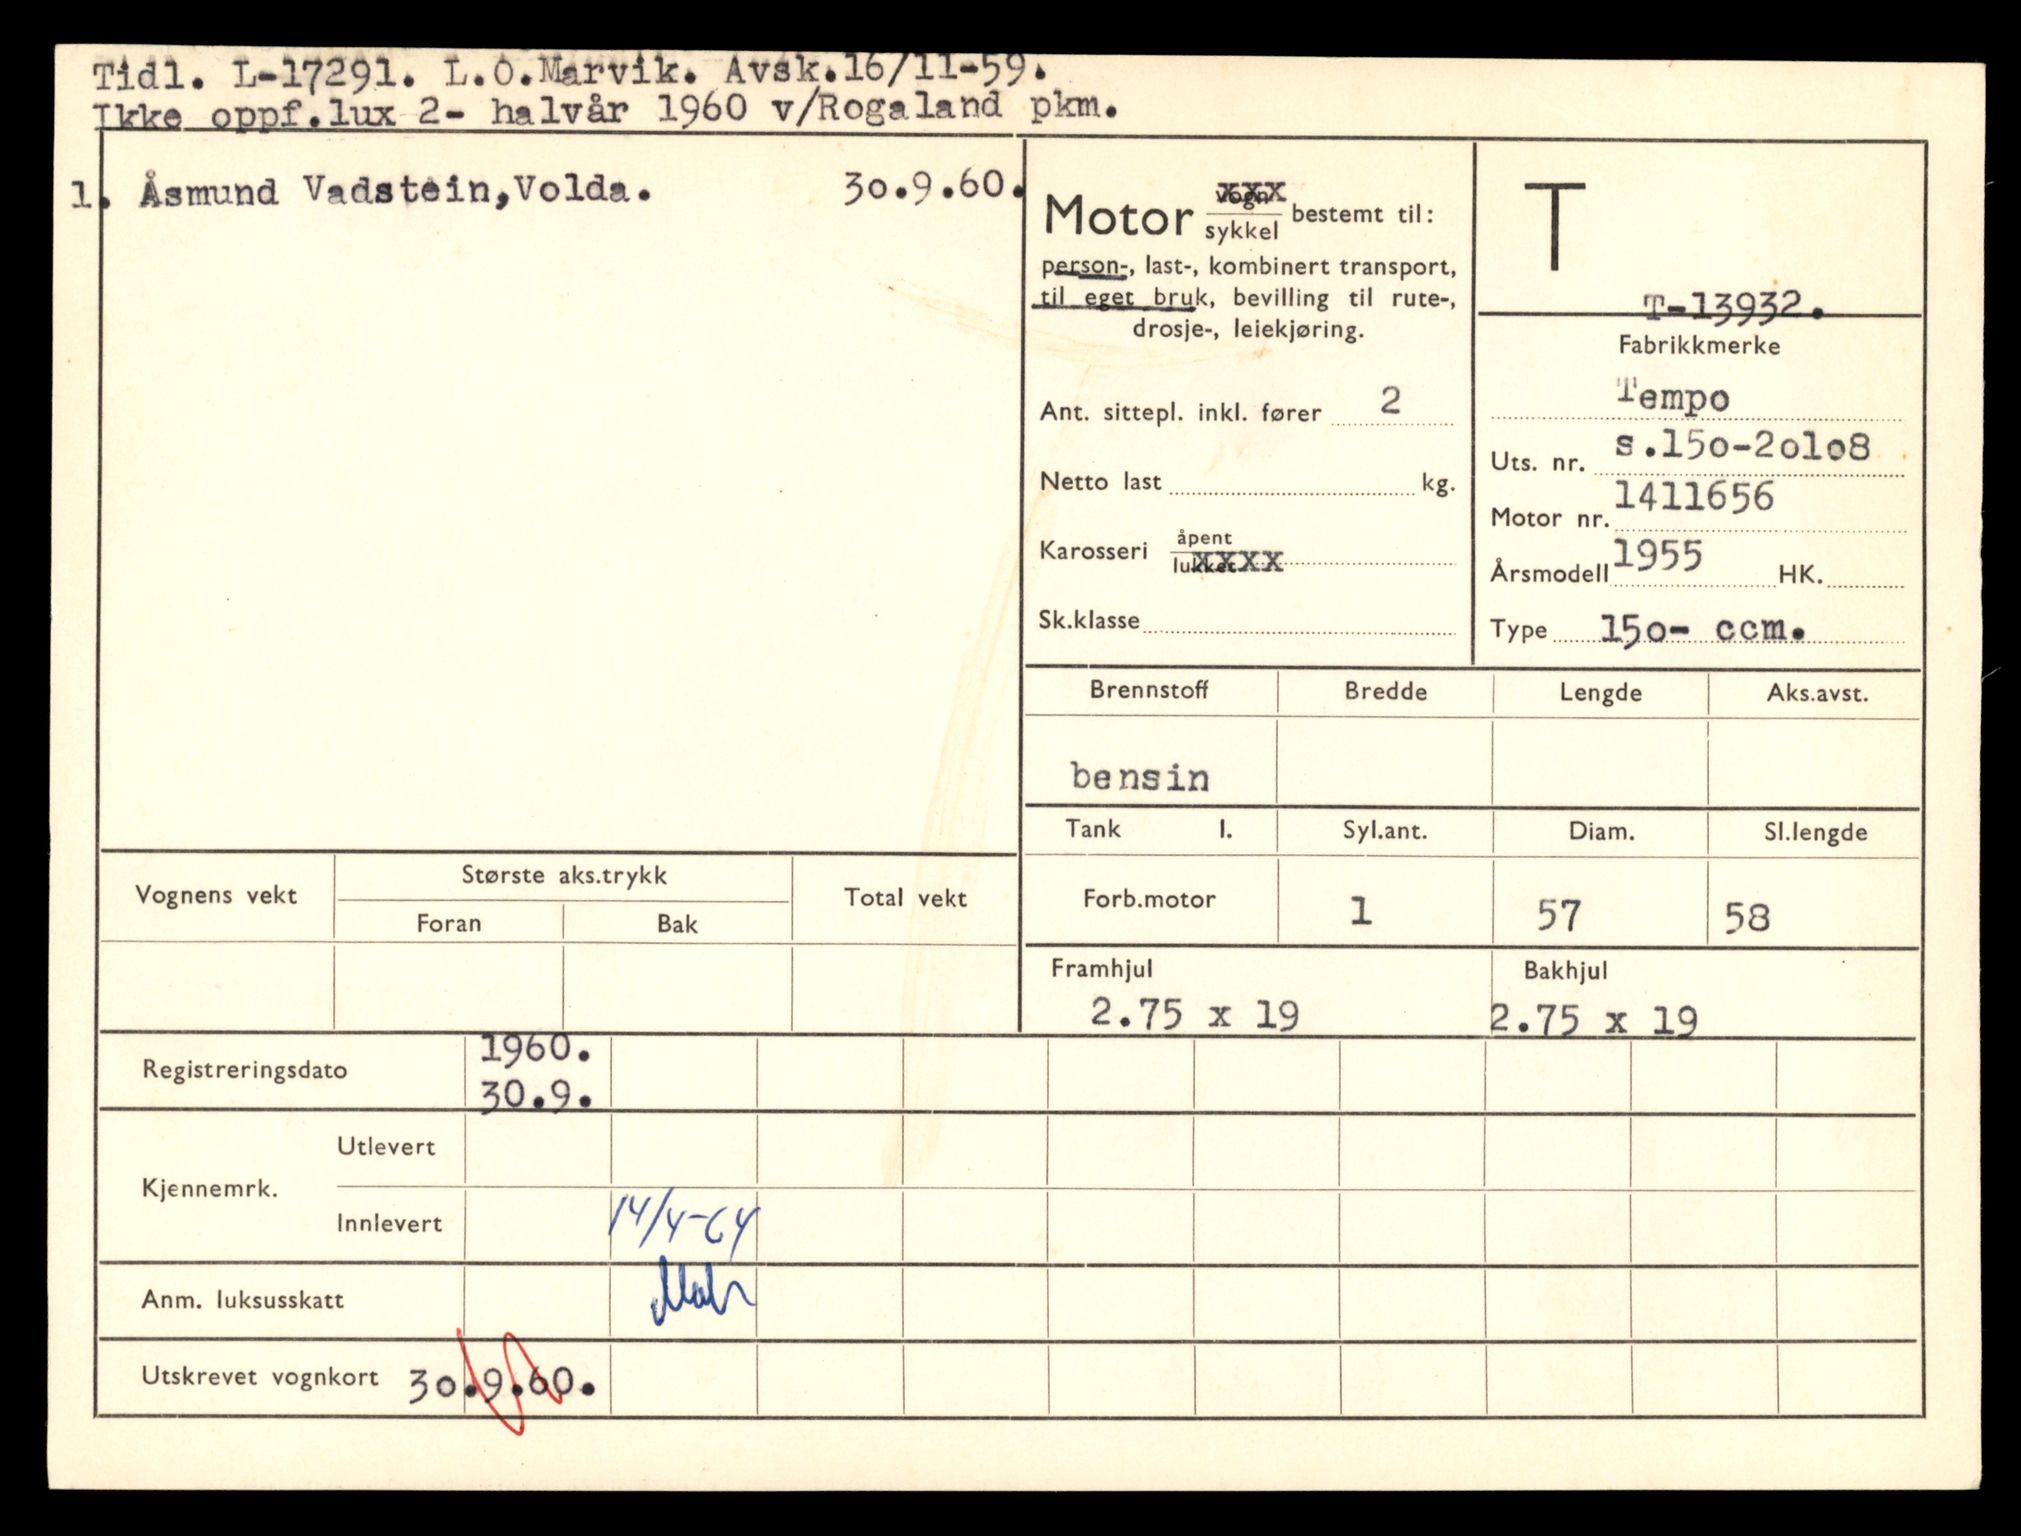 Tidl. L-17291. L.O.Marvik. Avsk.16/11-59.
Ikke oppf.lux 2- halvår 1960 v/Rogaland pkm.
1. Åsmund Vadstein,Volda. 30.9.60.
Motor vogn xxx
sykkel bestemt til:
person-, last-, kombinert transport,
til eget bruk, bevilling til rute-,
drosje-, leiekjøring.
Ant. sittepl. inkl. fører 2
Netto last kg.
Karosseri åpent
lukket xxxx
Sk.klasse
T
T-13932.
Fabrikkmerke
Tempo
Uts. nr. s.15o-2olo8
Motor nr. 1411656
Årsmodell 1955 HK.
Type 15o- ccm.
Brennstoff Bredde Lengde Aks.avst.
bensin
Tank l. Syl.ant. Diam. Sl.lengde
Forb.motor 1 57 58
Framhjul Bakhjul
2.75 x 19 2.75 x 19
Vognens vekt Største aks.trykk Total vekt
Foran Bak
Registreringsdato 1960.
30.9.
Kjennemrk. Utlevert
Innlevert 14/4-64
Anm. luksusskatt
Utskrevet vognkort 3o.9.60.